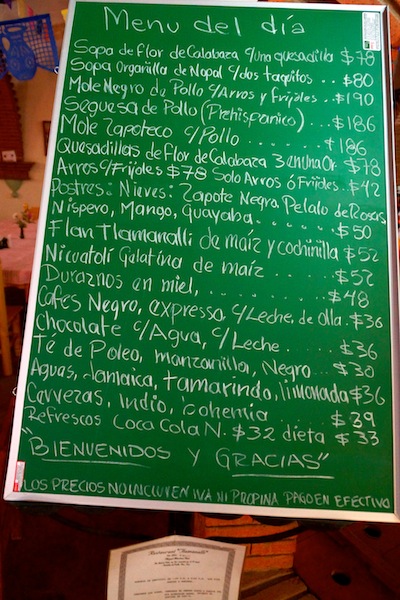 Menu del día
Sopa de flor de Calabaza c/una quesadilla $78
Sopa Organilla de Nopal c/dos taquitos .. $80
Mole Negro de Pollo c/Arros y frijoles .. $190
Seguesa de Pollo (Prehispanico) .... $186
Mole Zapoteco c/Pollo ...... $186
Quesadillas de flor de Calabaza 3 en una Or. $78
Arros c/Frijoles $78 Solo Arros ó Frijoles .. $42
Postres: Nieves: Zapote Negra, Petalo de Rosas
Nispero, Mango, Guayaba. ....... $50
Flan Tlamanalli de maíz y cochinilla $52
Nicuatolí Gelatina de maíz .... $52
Duraznos en miel, ....... $48
Cafes Negro, expresso, c/Leche, de olla .. $36
Chocolate c/Agua, c/Leche ...... $36
Té de Poleo, manzanilla, Negro ... $30
Aguas, Jamaica, tamarindo, limonada $36
Cervezas, Indio, bohemia ...... $39
Refrescos Coca Cola N. $32 dieta .. $33
"BIENVENIDOS Y GRACIAS"
LOS PRECIOS NO INCLUYEN IVA NI PROPINA PAGO EN EFECTIVO
Restaurant "Tlamanalli"